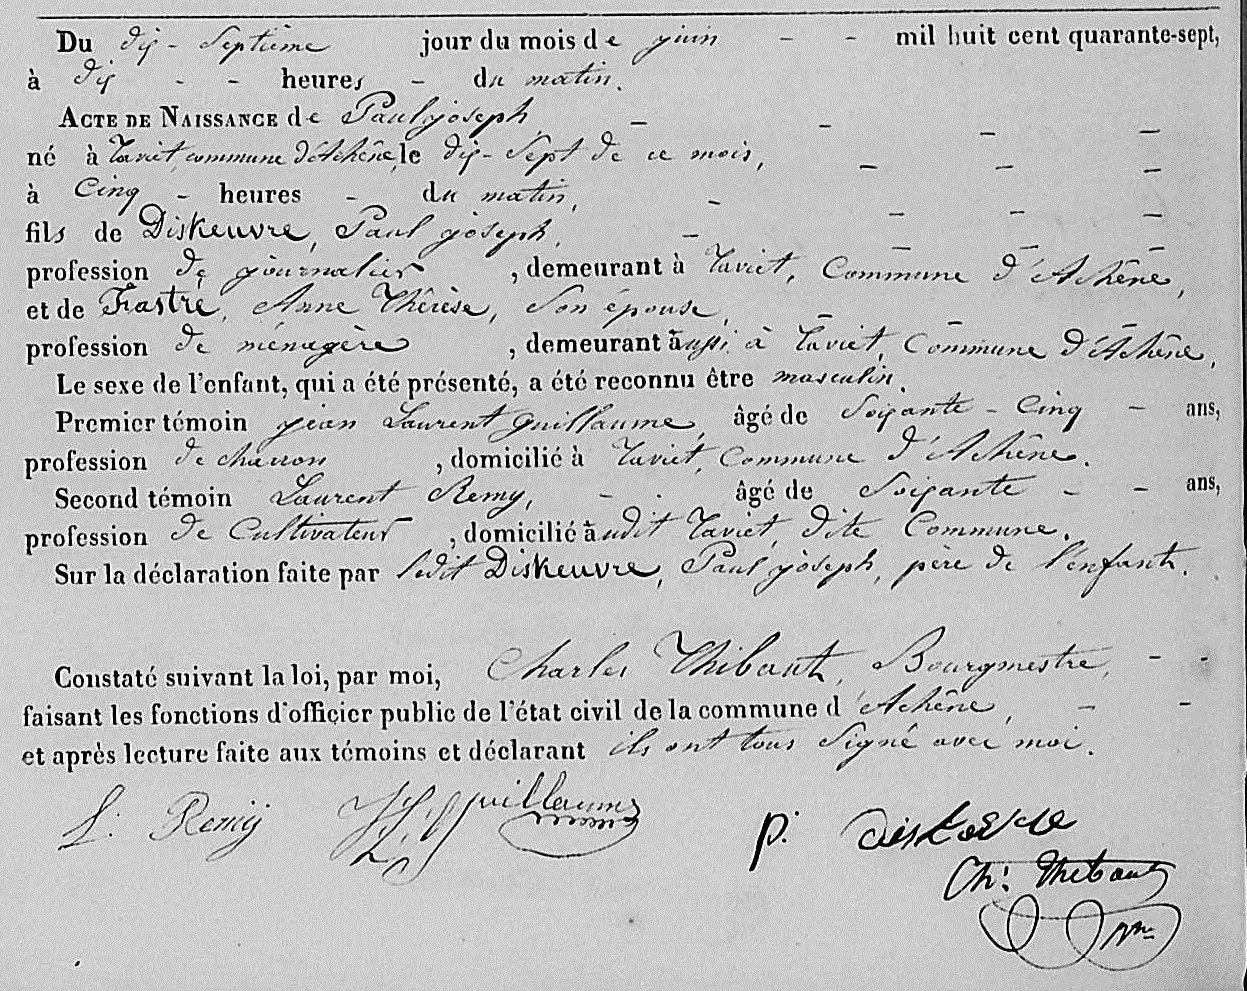 Du dix-septième jour du mois de juin - - mil huit cent quarante-sept,
à dix - - heures - du matin.
ACTE DE NAISSANCE de Paul joseph, - - - -
né à Taviet, commune d'Achêne, le dix-sept de ce mois, - - -
à cinq - heures - du matin, - - - -
fils de Diskeuvre, Paul joseph, - - - -
profession de journalier, demeurant à Taviet, Commune d'Achêne,
et de Frastré, Anne Thérèse, son épouse, - - -
profession de ménagère, demeurant aussi à Taviet, Commune d'Achêne,
Le sexe de l'enfant, qui a été présenté, a été reconnu être masculin.
Premier témoin jean Laurent Guillaume, âgé de soixante-cinq - ans,
profession de charron, domicilié à Taviet, commune d'Achêne.
Second témoin Laurent Remy, - - âgé de soixante - - ans,
profession de Cultivateur, domicilié audit Taviet, dite Commune.
Sur la déclaration faite par ledit Diskeuvre, Paul joseph, père de l'enfant.
Constaté suivant la loi, par moi, Charles Thibaut, Bourgmestre, - -
faisant les fonctions d'officier public de l'état civil de la commune d'Achêne, - -
et après lecture faite aux témoins et déclarant ils ont tous signé avec moi.
L. Remij J L Guillaume p. diskeuve
Ch. Thibaut